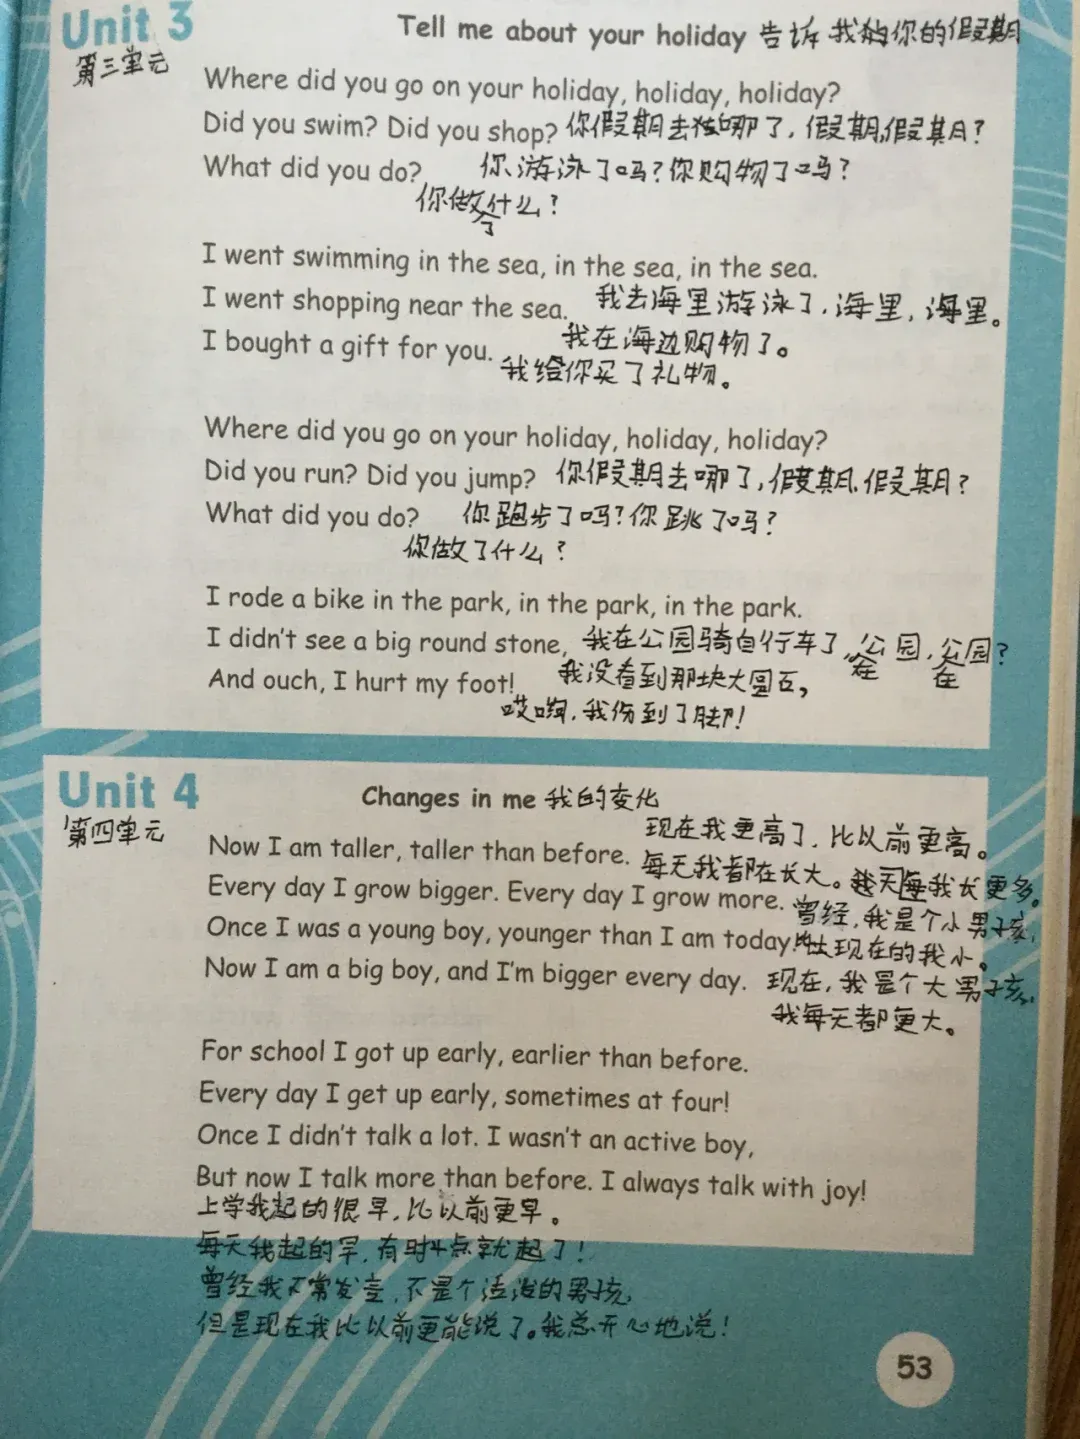 Unit 3
Tell me about your holiday 告诉我你的假期
第三单元
Where did you go on your holiday, holiday, holiday?
Did you swim? Did you shop? 你假期去哪了,假期,假期?
What did you do? 你游泳了吗?你购物了吗?
你做了什么?
I went swimming in the sea, in the sea, in the sea.
I went shopping near the sea. 我去海里游泳了,海里,海里。
I bought a gift for you. 我在海边购物了。
我给你买了礼物。
Where did you go on your holiday, holiday, holiday?
Did you run? Did you jump? 你假期去哪了,假期,假期?
What did you do? 你跑步了吗?你跳了吗?
你做了什么?
I rode a bike in the park, in the park, in the park.
I didn't see a big round stone, 我在公园骑自行车了,在公园,在公园?
And ouch, I hurt my foot! 我没看到那块大圆石,
哎哟,我伤到了脚!
Unit 4
Changes in me 我的变化
第四单元
现在我更高了,比以前更高。
Now I am taller, taller than before.
每天我都在长大。每天我长更多。
Every day I grow bigger. Every day I grow more.
曾经,我是个小男孩,
Once I was a young boy, younger than I am today! 比现在的我小。
Now I am a big boy, and I'm bigger every day. 现在,我是个大男孩,
我每天都更大。
For school I got up early, earlier than before.
Every day I get up early, sometimes at four!
Once I didn't talk a lot. I wasn't an active boy,
But now I talk more than before. I always talk with joy!
上学我起的很早,比以前更早。
每天我起的早,有时4点就起了!
曾经我不常发言,不是个活泼的男孩,
但是现在我比以前更能说了。我总开心地说!
53